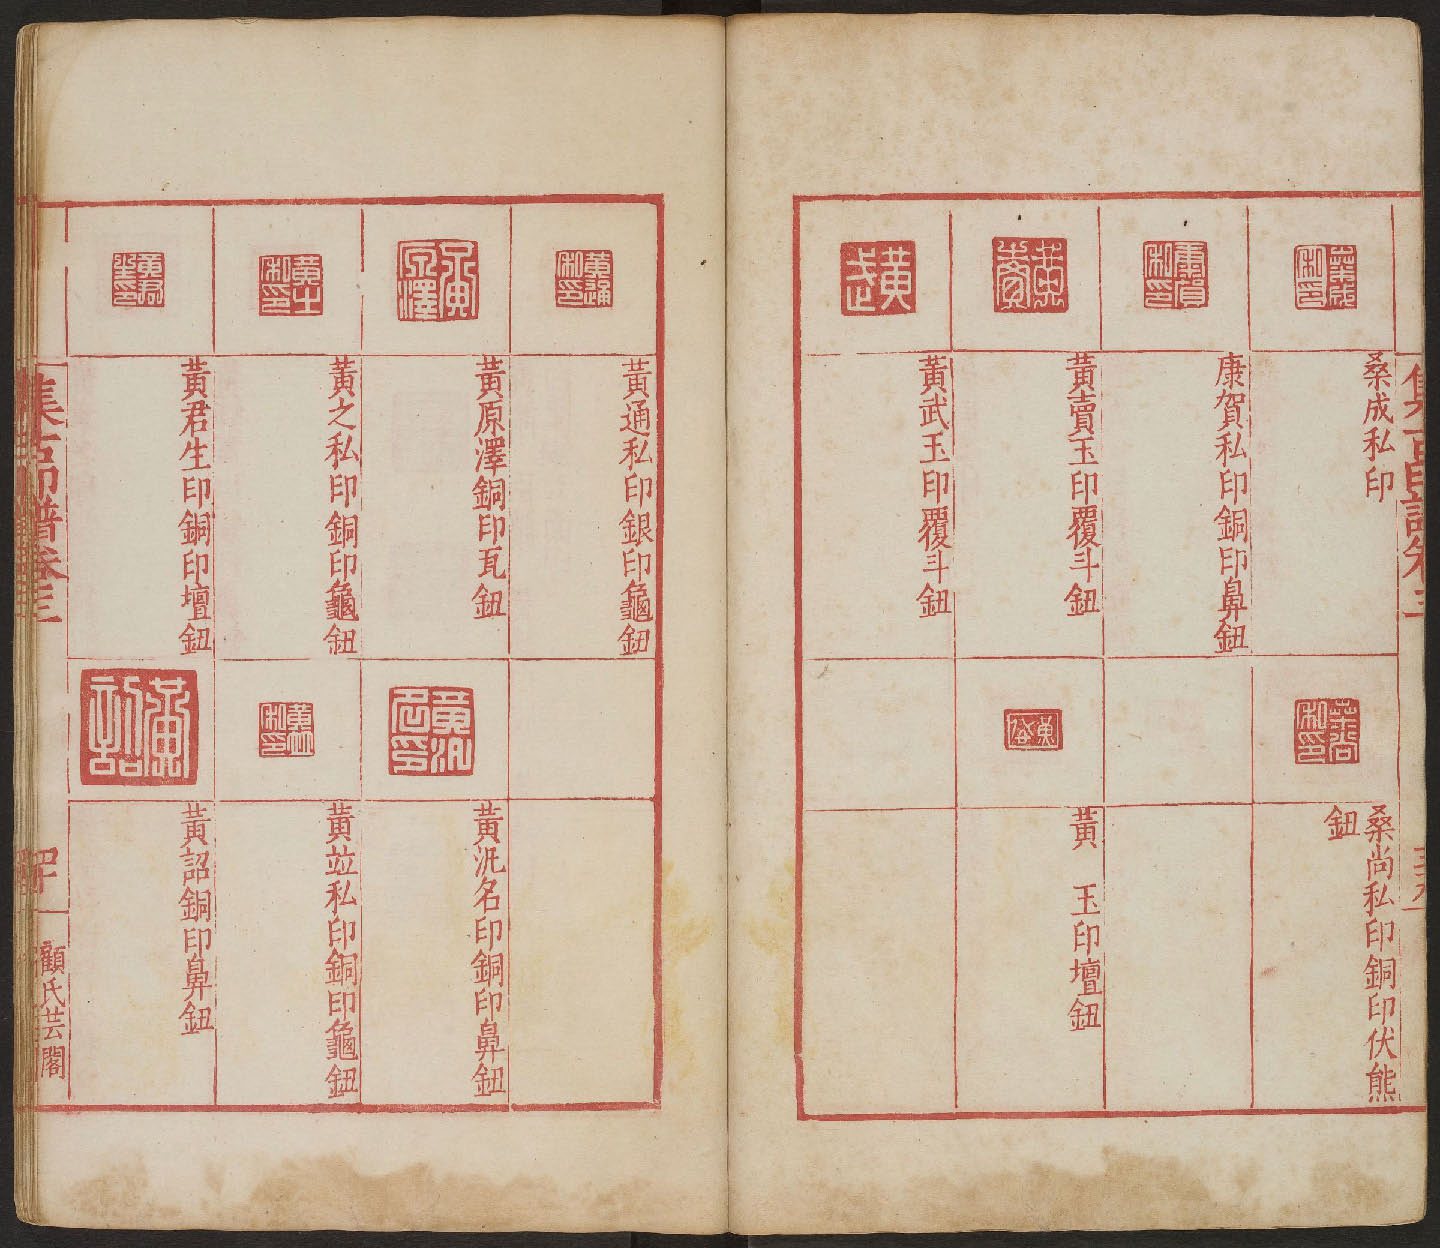 集古印譜卷三
桑成私印
桑尚私印銅印伏熊
鈕
康賀私印銅印鼻鈕
黃賣玉印覆斗鈕
黃 玉印壇鈕
黃武玉印覆斗鈕
黃通私印銀印龜鈕
黃原澤銅印瓦鈕
黃汎名印銅印鼻鈕
黃之私印銅印龜鈕
黃竝私印銅印龜鈕
黃君生印銅印壇鈕
黃詔銅印鼻鈕
集古印譜卷三
四十
顧氏芸閣